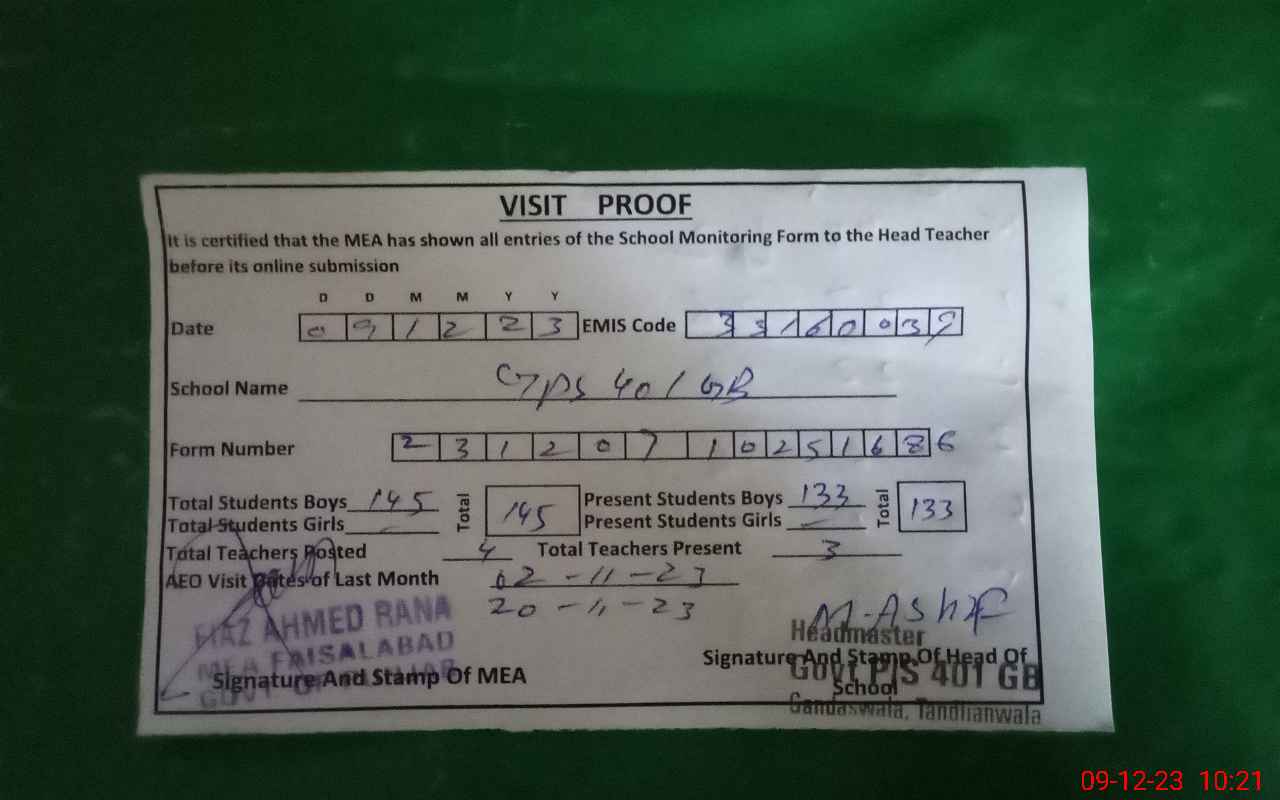 VISIT PROOF
It is certified that the MEA has shown all entries of the School Monitoring Form to the Head Teacher
before its online submission
D D M M Y Y
Date 0 9 1 2 2 3 EMIS Code 3 3 1 6 0 0 3 9
School Name GPS 401 GB
Form Number 2 3 1 2 0 7 1 0 2 5 1 6 8 6
Total Students Boys 145 Total 145 Present Students Boys 133 Total 133
Total Students Girls — Present Students Girls —
Total Teachers Posted 4 Total Teachers Present 3
AEO Visit Dates of Last Month 02-11-23
20-11-23
FIAZ AHMED RANA
MEA FAISALABAD
GOVT OF
Signature And Stamp Of MEA
M. Ashraf
Headmaster
Signature And Stamp Of Head Of
School
Govt P/S 401 GB
Gandaswala, Tandlianwala
09-12-23 10:21